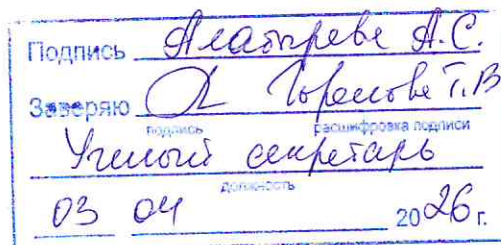 Подпись Алатырева А.С.
Заверяю Т.В
подпись расшифровка подписи
Ученый секретарь
должность
03 04 2026 г.